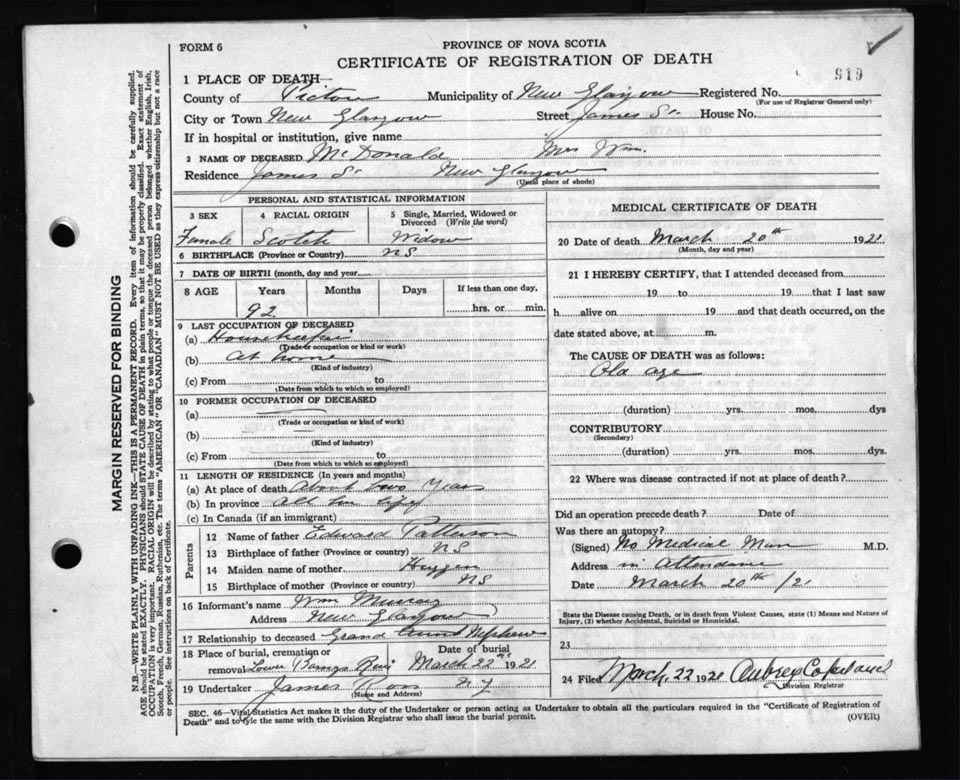 FORM 6
PROVINCE OF NOVA SCOTIA
CERTIFICATE OF REGISTRATION OF DEATH
919
1 PLACE OF DEATH
County of Pictou Municipality of New Glasgow Registered No.
(For use of Registrar General only)
City or Town New Glasgow Street James St. House No.
If in hospital or institution, give name
2 NAME OF DECEASED McDonald Mrs Wm.
Residence James St New Glasgow
(Usual place of abode)
PERSONAL AND STATISTICAL INFORMATION
3 SEX 4 RACIAL ORIGIN 5 Single, Married, Widowed or Divorced (Write the word)
Female Scotch Widow
6 BIRTHPLACE (Province or Country) NS.
7 DATE OF BIRTH (month, day and year
8 AGE Years Months Days If less than one day,
92 hrs. or min.
9 LAST OCCUPATION OF DECEASED
(a) Housekeeper
(Trade or occupation or kind or work)
(b) At home
(Kind of industry)
(c) From to
(Date from which to which so employed)
10 FORMER OCCUPATION OF DECEASED
(a)
(Trade or occupation or kind of work)
(b)
(Kind of industry)
(c) From to
(Date from which to which so employed)
11 LENGTH OF RESIDENCE (In years and months)
(a) At place of death About two years
(b) In province all her life
(c) In Canada (if an immigrant)
Parents
12 Name of father Edward Patterson
13 Birthplace of father (Province or country) NS
14 Maiden name of mother
15 Birthplace of mother (Province or country) NS
16 Informant's name Wm Murray
Address New Glasgow
17 Relationship to deceased Grand Aunt Nephew
18 Place of burial, cremation or Date of burial
removal Lower Barneys River March 22nd 1921
19 Undertaker James Ross N G
(Name and Address)
MEDICAL CERTIFICATE OF DEATH
20 Date of death March 20th 1921
(Month, day and year)
21 I HEREBY CERTIFY, that I attended deceased from
19 to 19 that I last saw
h alive on 19 and that death occurred, on the
date stated above, at m.
The CAUSE OF DEATH was as follows:
Old age
(duration) yrs. mos. dys
CONTRIBUTORY
(Secondary)
(duration) yrs. mos. dys.
22 Where was disease contracted if not at place of death?
Did an operation precede death? Date of
Was there an autopsy?
(Signed) No Medical Man M.D.
Address in Attendance
Date March 20th /21
State the Disease causing Death, or in death from Violent Causes, state (1) Means and Nature of
Injury, (2) whether Accidental, Suicidal or Homicidal.
23
24 Filed March 22 1921 Aubrey Copeland
Division Registrar
SEC. 46—Vital Statistics Act makes it the duty of the Undertaker or person acting as Undertaker to obtain all the particulars required in the "Certificate of Registration of
Death" and to tyle the same with the Division Registrar who shall issue the burial permit.
(OVER)
MARGIN RESERVED FOR BINDING
N.B.—WRITE PLAINLY WITH UNFADING INK—THIS IS A PERMANENT RECORD. Every item of information should be carefully supplied.
AGE should be stated EXACTLY. PHYSICIANS should STATE CAUSE OF DEATH in plain terms, so that it may be properly classified. Exact statement of
OCCUPATION is very important. RACIAL ORIGIN will be described by stating to what people or tongue the deceased person belonged whether English, Irish,
Scotch, French, German, Russian, Ruthenian, etc. The terms "AMERICAN" OR "CANADIAN" MUST NOT BE USED as they express citizenship but not a race
or people. See instructions on back of Certificate.